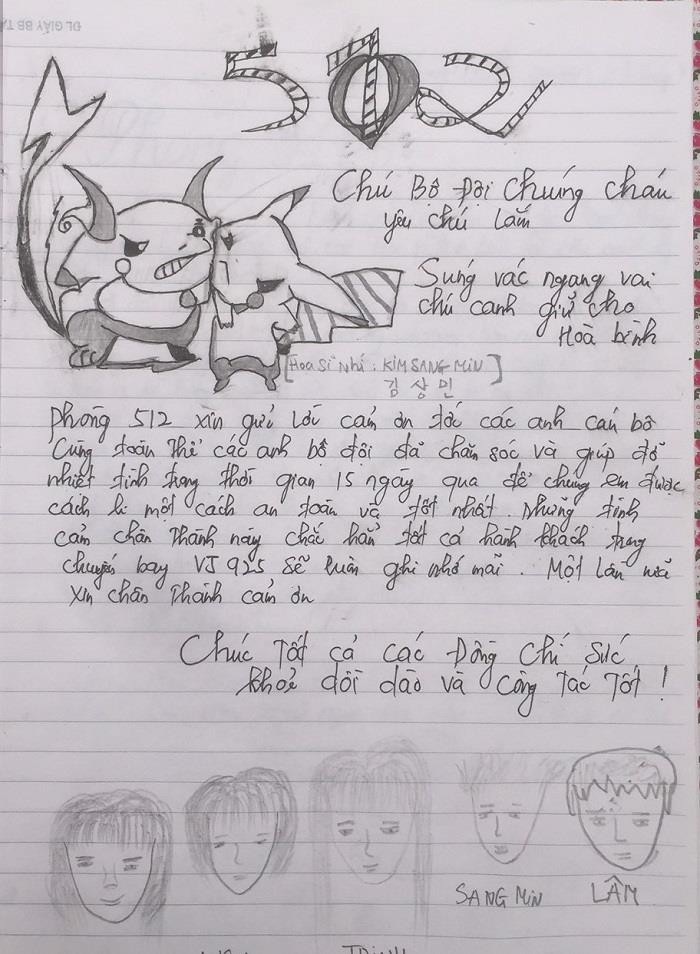 ĐL GIẤY BB TA
512
Chú Bộ Đội Chúng cháu
yêu chú lắm
Súng vác ngang vai
chú canh giữ cho
Hoà bình
[Hoạ Sĩ Nhí : KIM SANG MIN]
김상민
Phòng 512 xin gửi lời cảm ơn tới các anh cán bộ
Cùng toàn thể các anh bộ đội đã chăm sóc và giúp đỡ
nhiệt tình trong thời gian 15 ngày qua để chúng em được
cách li một cách an toàn và tốt nhất. Những tình
cảm chân thành này chắc hẳn tất cả hành khách trong
chuyến bay VJ 925 sẽ luôn ghi nhớ mãi. Một lần nữa
xin chân thành cảm ơn
Chúc Tất cả các Đồng Chí Sức
khoẻ dồi dào và Công Tác Tốt !
SANG MIN LÂM